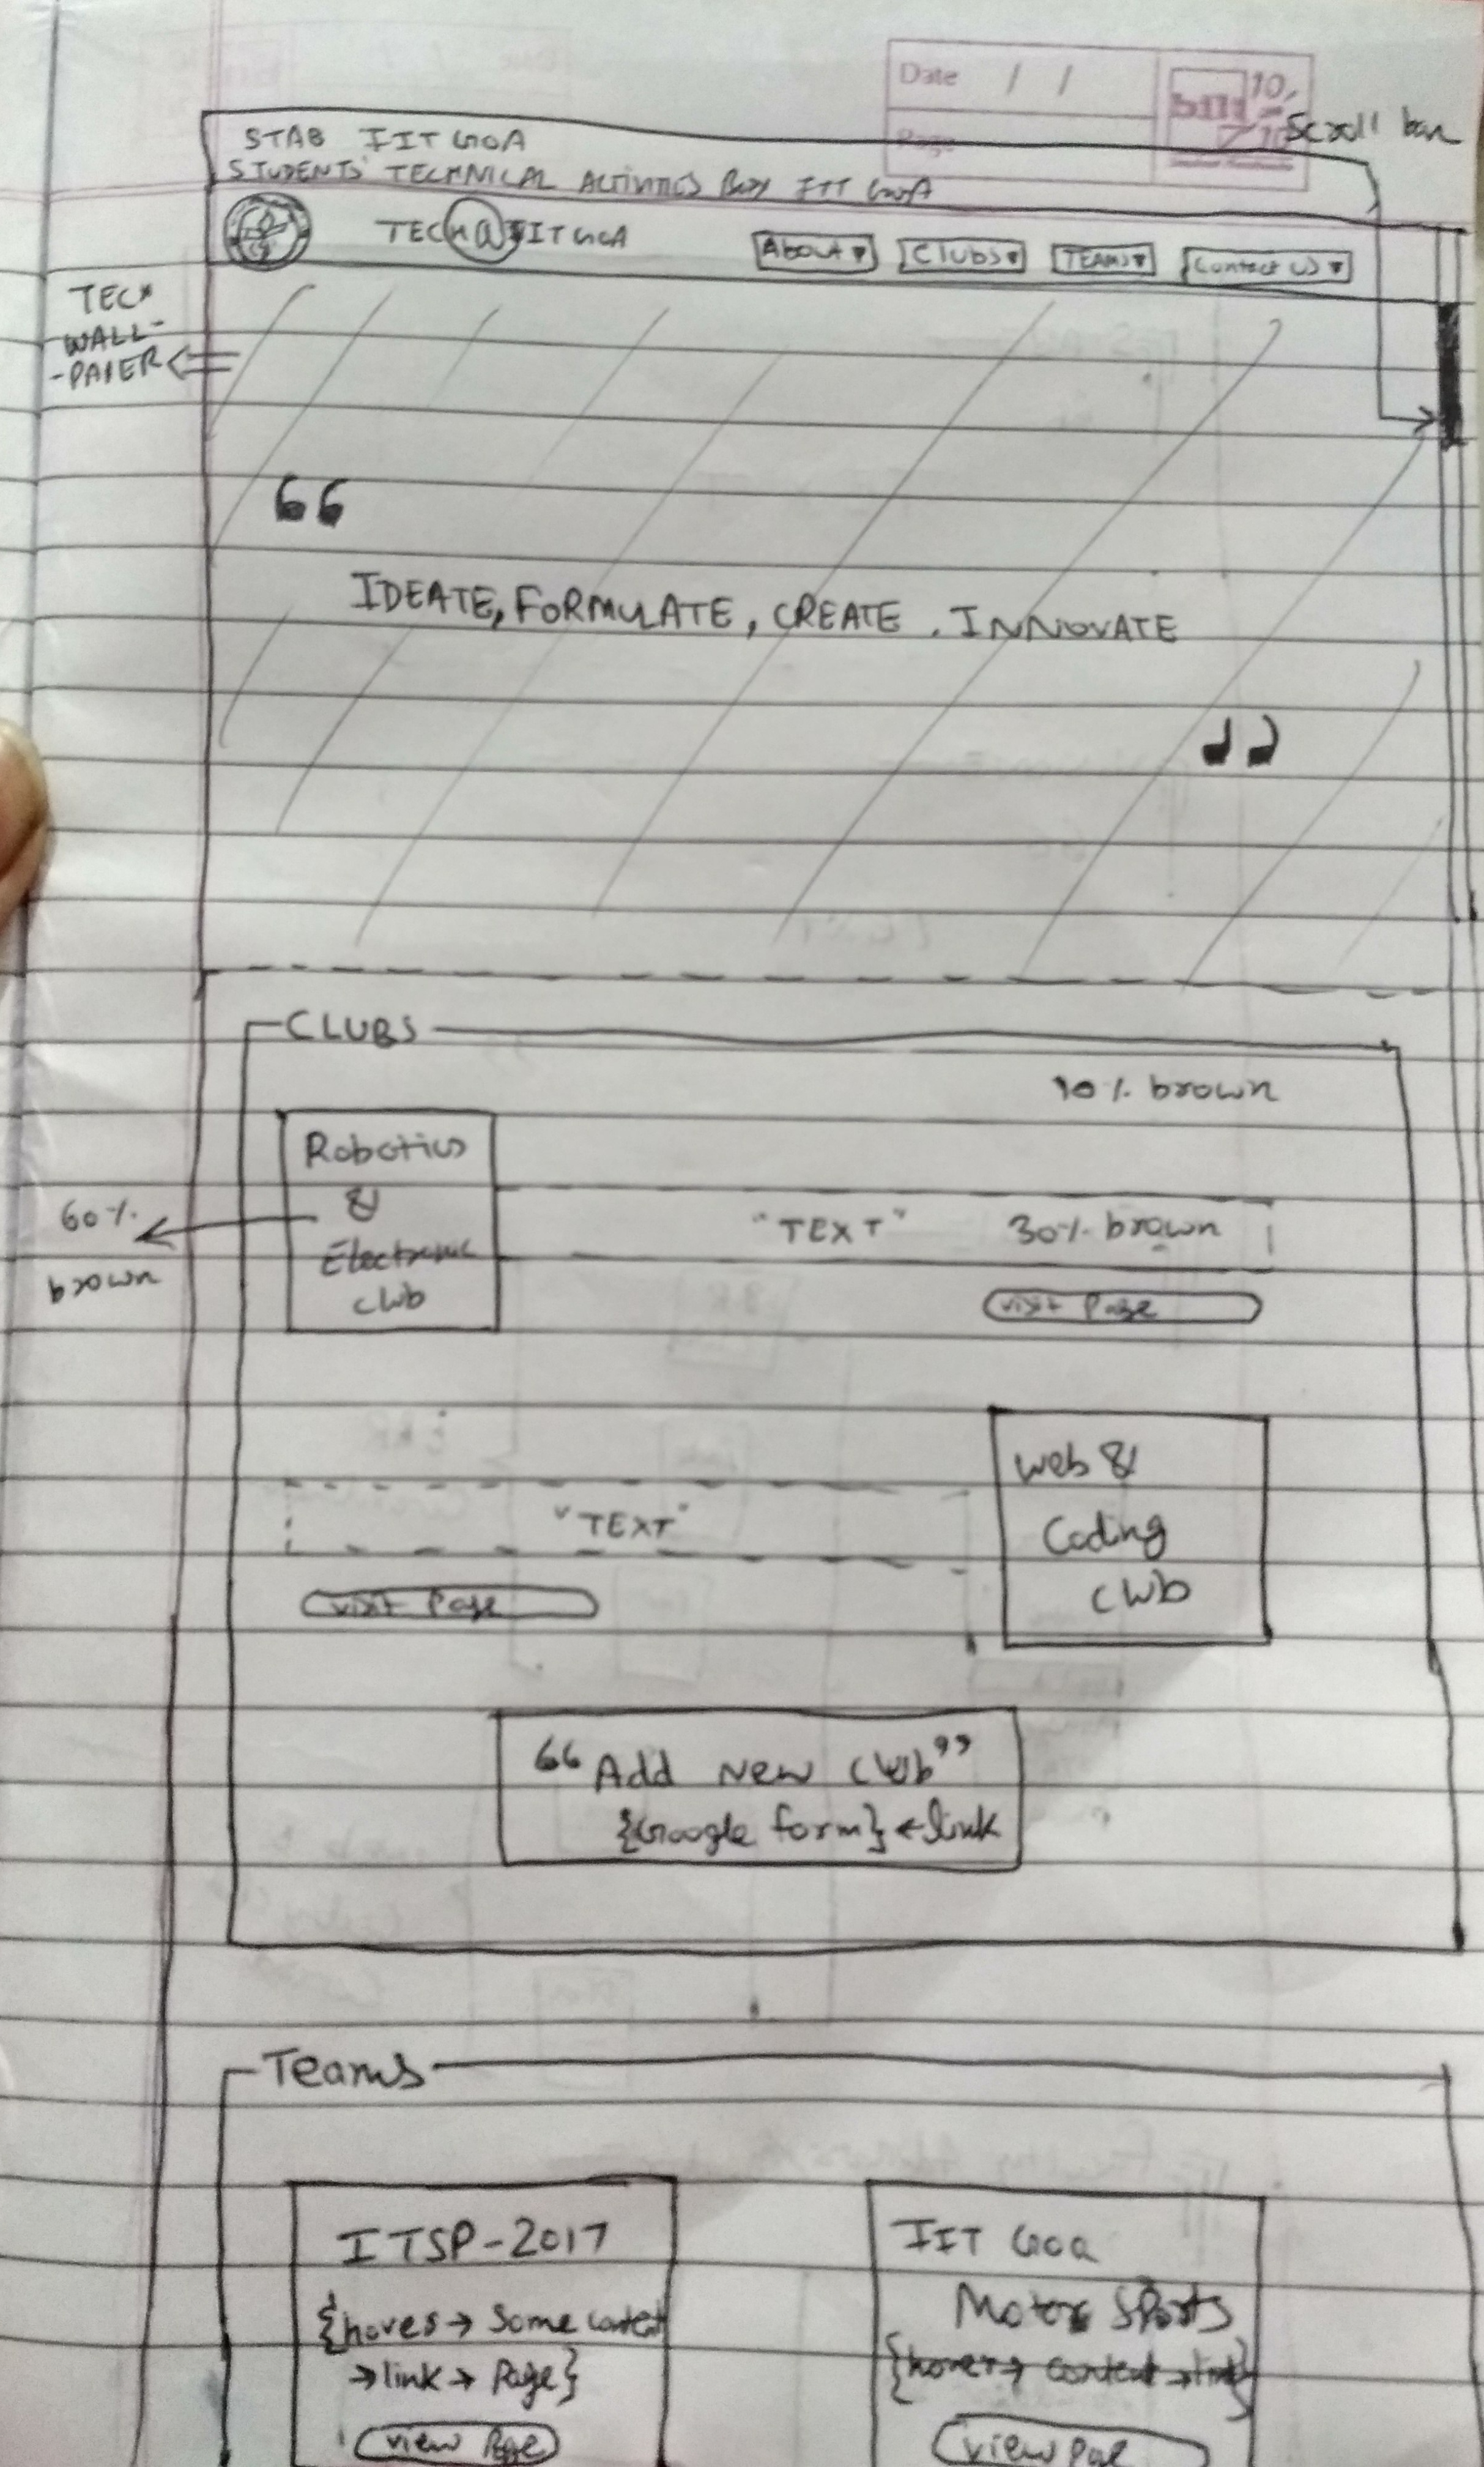 Date / /
Page
Scroll bar
STAB IIT GOA
STUDENTS' TECHNICAL ACTIVITIES BODY IIT GOA
TECH@IIT GOA
About▼ Clubs▼ TEAMS▼ Contact us▼
TECH
WALL-
-PAPER
“
IDEATE, FORMULATE, CREATE. INNOVATE
”
CLUBS
10% brown
Robotics
&
Electronic
club
60%
brown
"TEXT" 30% brown
visit Page
Web &
Coding
club
"TEXT"
visit Page
“Add New Club”
{Google form} ← link
Teams
ITSP-2017
{hover → Some content
→ link → Page}
view Page
IIT Goa
Motor Sports
{hover → content → link}
view Page